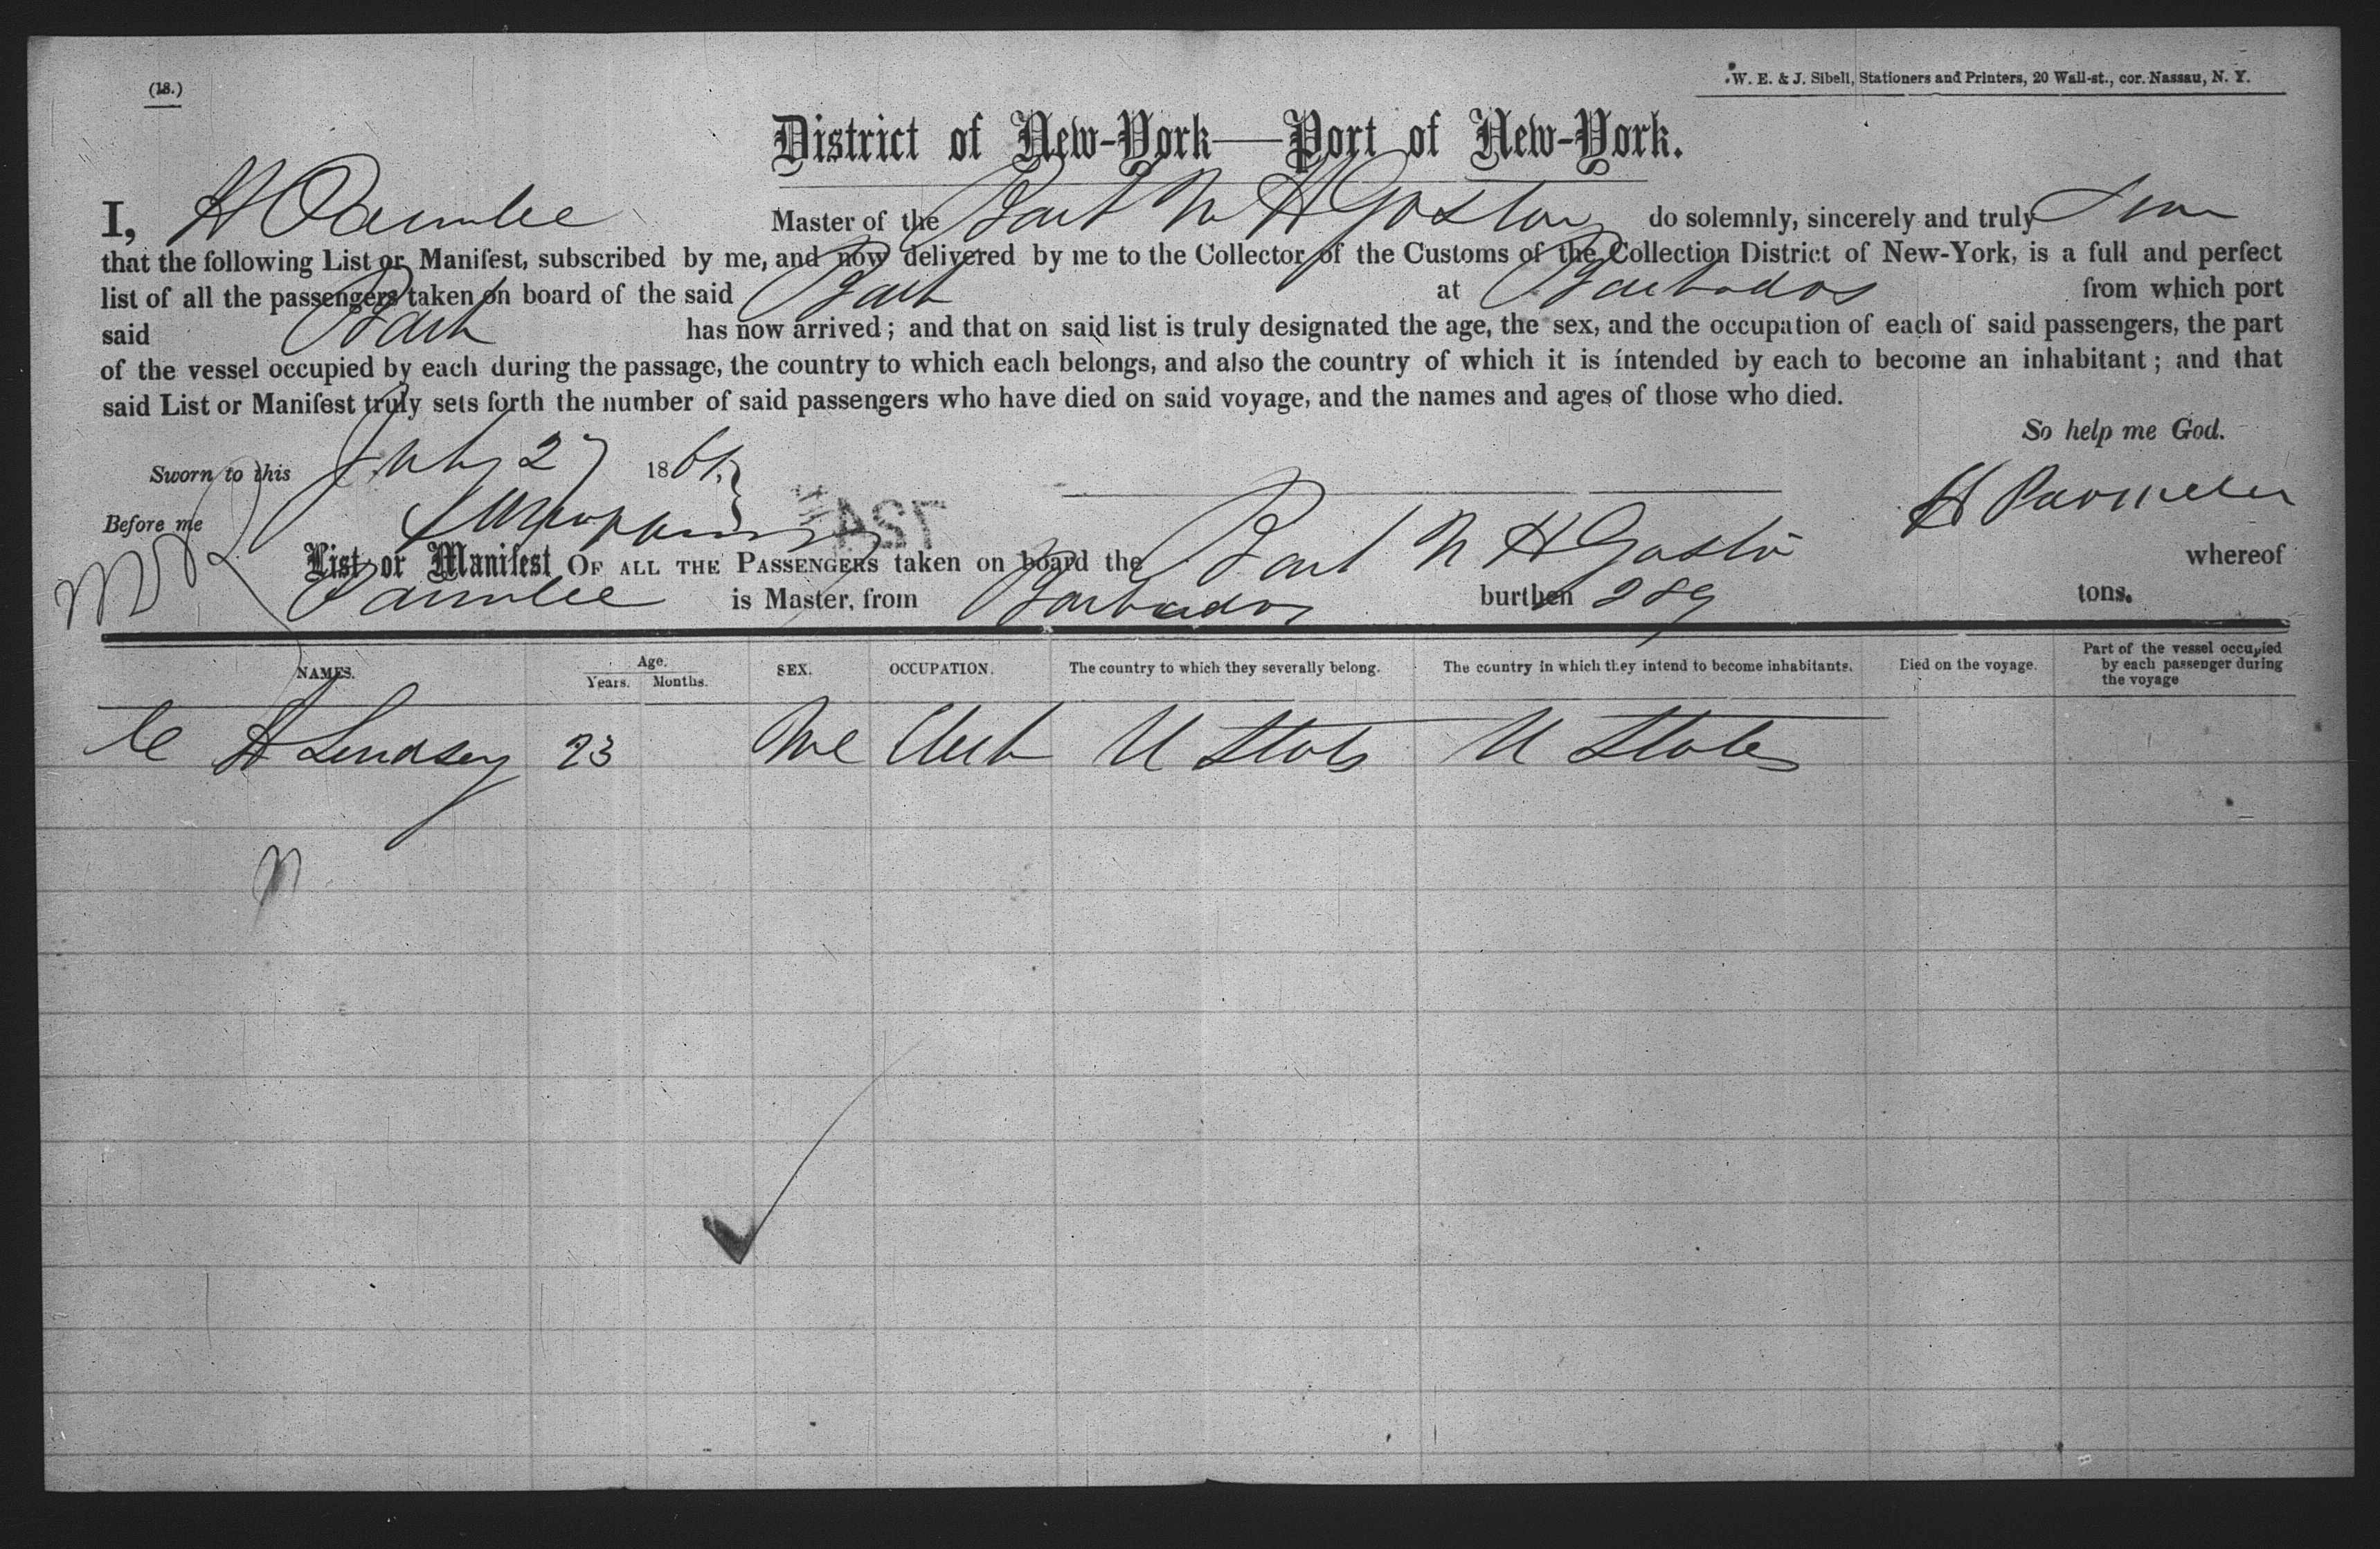 (18.)
W. E. & J. Sibell, Stationers and Printers, 20 Wall-st., cor. Nassau, N. Y.
District of New-York—Port of New-York.
I, H Parmlee Master of the Bark N H Gaston do solemnly, sincerely and truly swear
that the following List or Manifest, subscribed by me, and now delivered by me to the Collector of the Customs of the Collection District of New-York, is a full and perfect
list of all the passengers taken on board of the said Bark at Barbados from which port
said Bark has now arrived; and that on said list is truly designated the age, the sex, and the occupation of each of said passengers, the part
of the vessel occupied by each during the passage, the country to which each belongs, and also the country of which it is intended by each to become an inhabitant; and that
said List or Manifest truly sets forth the number of said passengers who have died on said voyage, and the names and ages of those who died.
So help me God.
Sworn to this July 27 1861. H Parmelee
Before me
724
List or Manifest OF ALL THE PASSENGERS taken on board the Bark N H Gaston whereof
Parmlee is Master, from Barbados burthen 289 tons.
NAMES. Age. Years. Months. SEX. OCCUPATION. The country to which they severally belong. The country in which they intend to become inhabitants. Died on the voyage. Part of the vessel occupied by each passenger during the voyage
C H Lindsey 23 Mle Clerk U States U States